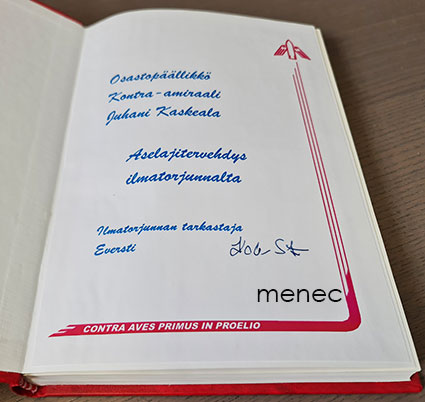 Osastopäällikkö
Kontra-amiraali
Juhani Kaskeala
Aselajitervehdys
ilmatorjunnalta
Ilmatorjunnan tarkastaja
Eversti
menec
CONTRA AVES PRIMUS IN PROELIO